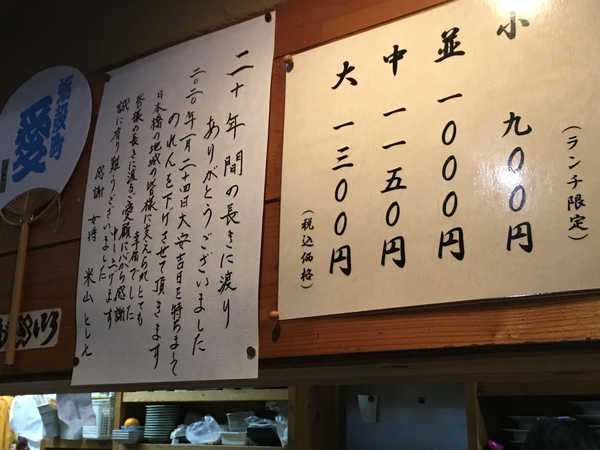 小 九〇〇円
（ランチ限定）
並 一〇〇〇円
中 一一五〇円
大 一三〇〇円
（税込価格）
二十年間の長きに渡り
ありがとうございました
二〇二〇年一月二十四日大安吉日を持ちまして
のれんを下げさせて頂きます
日本橋の地域の皆様に支えられとても
幸福でした
皆様の長きに渡るご愛顧に心から感謝
申し上げます
誠に有り難うございました
感謝 女将 米山